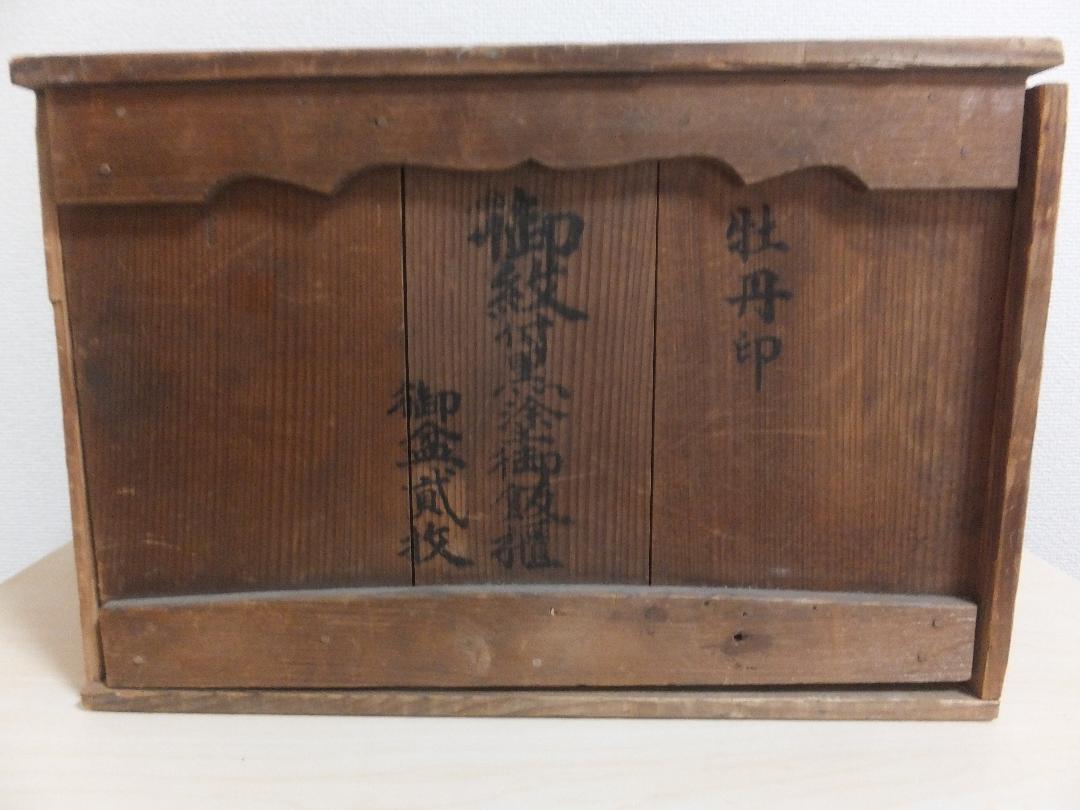 牡丹印
御紋付黒塗御飯櫃
御盆貳枚